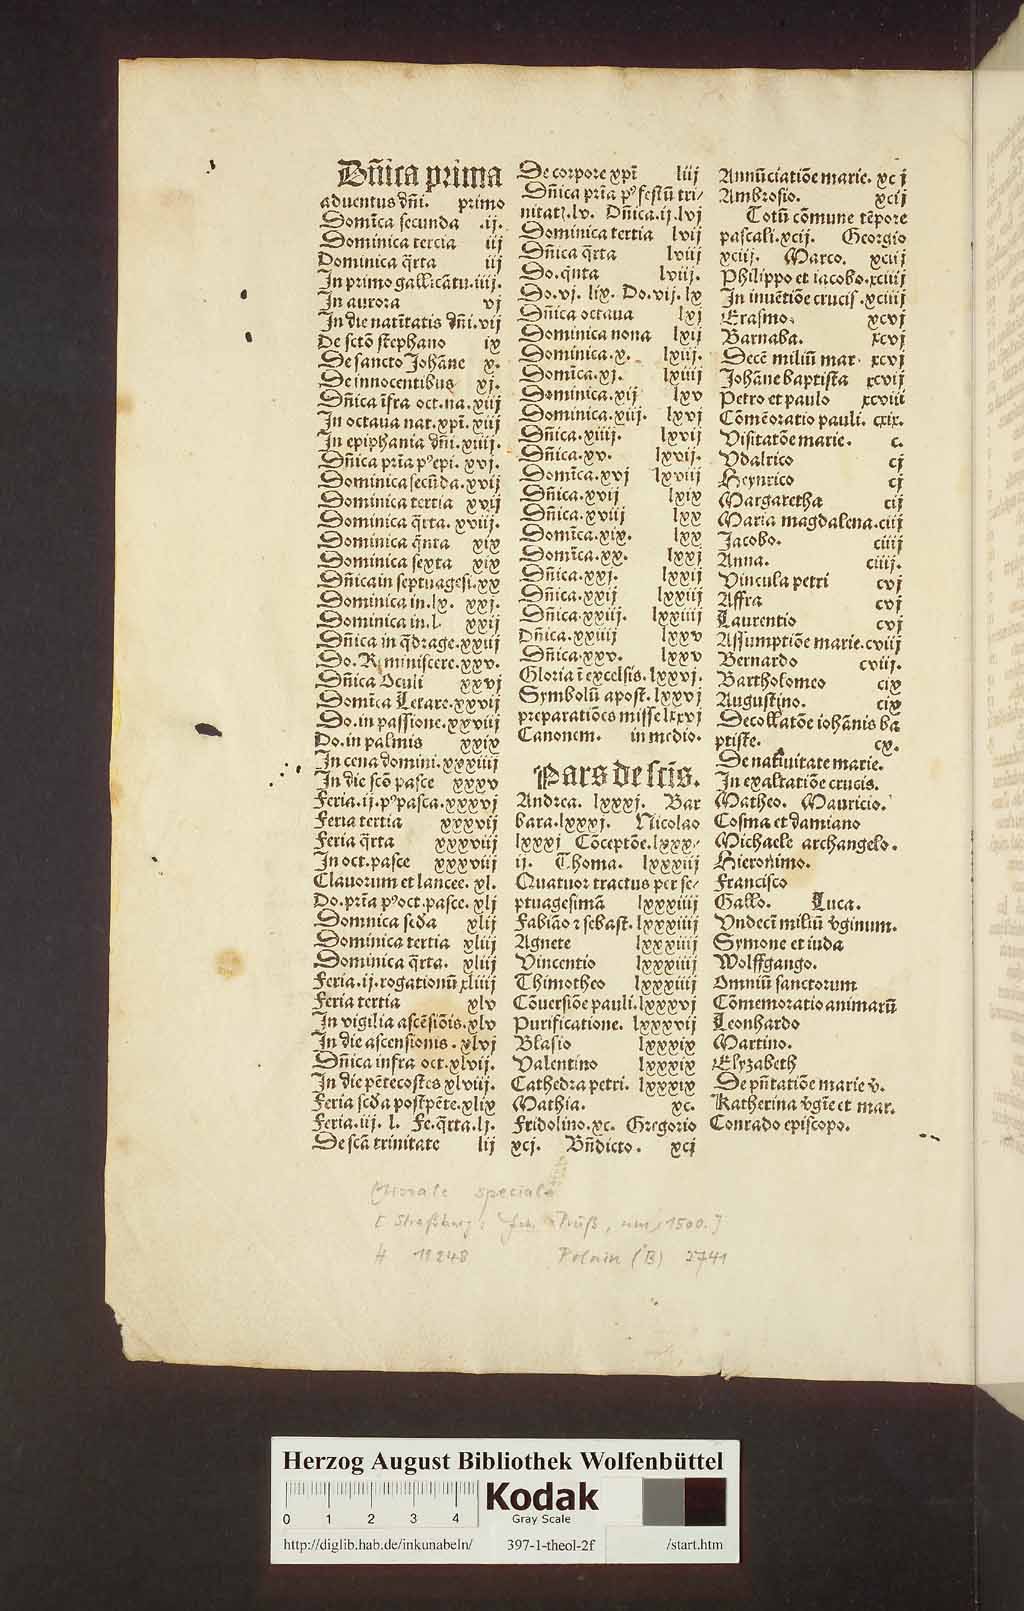 Dn̄ica prima
aduentus dn̄i. primo
Domīca secunda .ij.
Dominica tercia iij
Dominica q̄rta iij
In primo gallicātu.iiij.
In aurora vj
In die natītatis dn̄i.vij
De sctō stephano ix
De sancto Johāne x.
De innocentibus xj.
Dn̄ica īfra oct.na.xiij
In octaua nat.xpi.xiij
In epiphania dn̄i.xiiij.
Dn̄ica prīa pꝰepi.xvj.
Dominica secūda.xvij
Dominica tertia xvij
Dominica q̄rta.xviij.
Dominica q̄nta xix
Dominica sexta xix
Dn̄ica in septuagesi.xx
Dominica in.lx. xxj.
Dominica in.l. xxij
Dn̄ica in q̄drage.xxiij
Do.Reminiscere.xxv.
Dn̄ica Oculi xxvj
Domīca Letare.xxvij
Do.in passione.xxviij
Do.in palmis xxix
In cena domini.xxxiij
In die scō pasce xxxv
Feria.ij.pꝰpasca.xxxvj
Feria tertia xxxvij
Feria q̄rta xxxviij
In oct.pasce xxxviij
Clauorum et lancee.xl.
Do.prīa pꝰoct.pasce.xlj
Domnica scd̄a xlij
Dominica tertia xliij
Dominica q̄rta. xliij
Feria.ij.rogationū xliiij
Feria tertia xlv
In vigilia ascēsiōis.xlv
In die ascensionis.xlvj
Dn̄ica infra oct.xlvij.
In die pētecostes xlviij.
Feria scd̄a postpēte.xlix
Feria.iij.l. Fe.q̄rta.lj.
De scā trinitate lij
De corpore xpī liij
Dn̄ica prīa pꝰfestū tri⸗
nitatꝭ.lv. Dn̄ica.ij.lvj
Dominica tertia lvij
Dn̄ica q̄rta lviij
Do.q̄nta lviij.
Do.vj. lix. Do.vij.lx
Dn̄ica octaua lxj
Dominica nona lxij
Dominica.x. lxiij.
Domīca.xj. lxiiij
Dominica.xij lxv
Dominica.xiij. lxvj
Dn̄ica.xiiij. lxvij
Dn̄ica.xv. lxvij.
Domīca.xvj lxviij
Dn̄ica.xvij lxix
Dn̄ica.xviij lxx
Domīca.xix. lxx
Domīca.xx. lxxj
Dn̄ica.xxj. lxxij
Dn̄ica.xxij lxxiij
Dn̄ica.xxiij. lxxiiij
Dn̄ica.xxiiij lxxv
Dn̄ica.xxv. lxxv
Gloria ī excelsis.lxxvj.
Symbolū apost.lxxvj
preparatiōes misse lxxvj
Canonem. in medio.
Pars de scīs.
Andrea. lxxxj. Bar
bara.lxxxj. Nicolao
lxxxj Cōceptōe.lxxx⸗
ij. Thoma. lxxxiij
Quatuor tractus per se⸗
ptuagesimā lxxxiiij
Fabiāo ⁊ sebast.lxxxiiij
Agnete lxxxiiij
Vincentio lxxxiiij
Thimotheo lxxxiiij
Cōuersiōe pauli.lxxxvj
Purificatione. lxxxvij
Blasio lxxxix
Valentino lxxxix
Cathedra petri. lxxxix
Mathia. xc.
Fridolino.xc. Gregorio
xcj. Bn̄dicto. xcj
Annūciatiōe marie. xcj
Ambrosio. xcij
Totū cōmune tēpore
pascali.xcij. Georgio
xciij. Marco. xciij
Philippo et iacobo.xciiij
In inuētiōe crucis.xciiij
Erasmo. xcvj
Barnaba. xcvj
Decē miliū mar. xcvj
Johāne baptista xcvij
Petro et paulo xcviii
Cōmēoratio pauli. cxix.
Visitatōe marie. c.
Vdalrico cj
Heynrico cj
Margaretha cij
Maria magdalena.ciij
Jacobo. ciiij
Anna. ciiij.
Vincula petri cvj
Affra cvj
Laurentio cvj
Assumptiōe marie.cviij
Bernardo cviij.
Bartholomeo cix
Augustino. cix
Decollatōe iohānis ba
ptiste. cx.
De natiuitate marie.
In exaltatiōe crucis.
Matheo. Mauricio.
Cosma et damiano
Michaele archangelo.
Hieronimo.
Francisco
Gallo. Luca.
Vndecī miliū v̄ginum.
Symone et iuda
Wolffgango.
Omniū sanctorum
Cōmemoratio animarū
Leonhardo
Martino.
Elyzabeth
De pn̄tatiōe marie v̄.
Katherina v̄gīe et mar.
Conrado episcopo.
Missale speciale
[Straßburg: Joh. Prüß, um 1500.]
H 11248 Polain (B) 2741
Herzog August Bibliothek Wolfenbüttel
0 1 2 3 4
Kodak
Gray Scale
http://diglib.hab.de/inkunabeln/ 397-1-theol-2f /start.htm